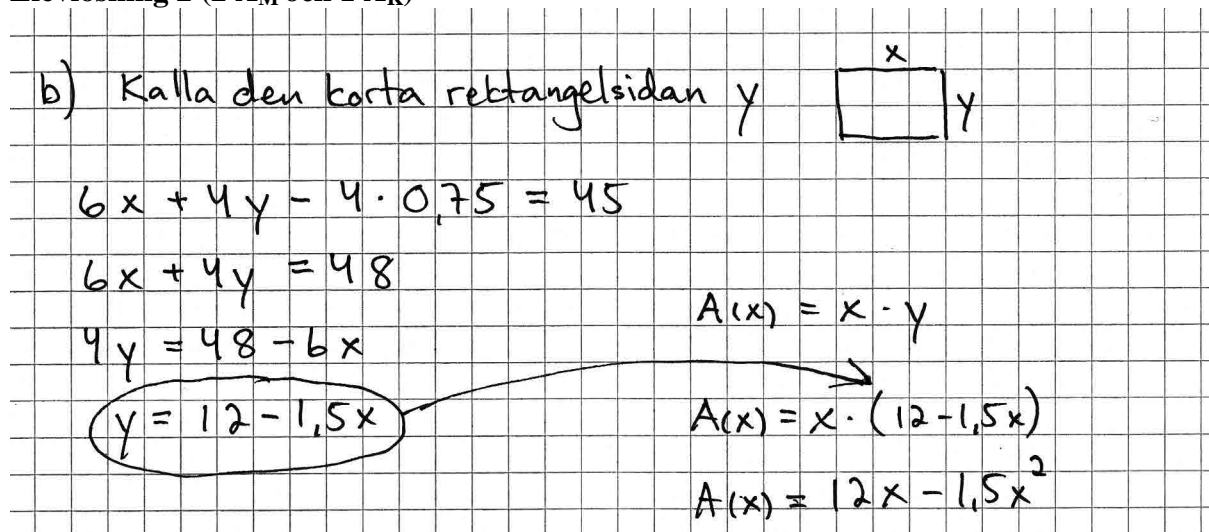 b) Kalla den korta rektangelsidan y
x
y
6x + 4y - 4 · 0,75 = 45
6x + 4y = 48
4y = 48 - 6x
y = 12 - 1,5x
A(x) = x · y
A(x) = x · (12 - 1,5x)
A(x) = 12x - 1,5x²